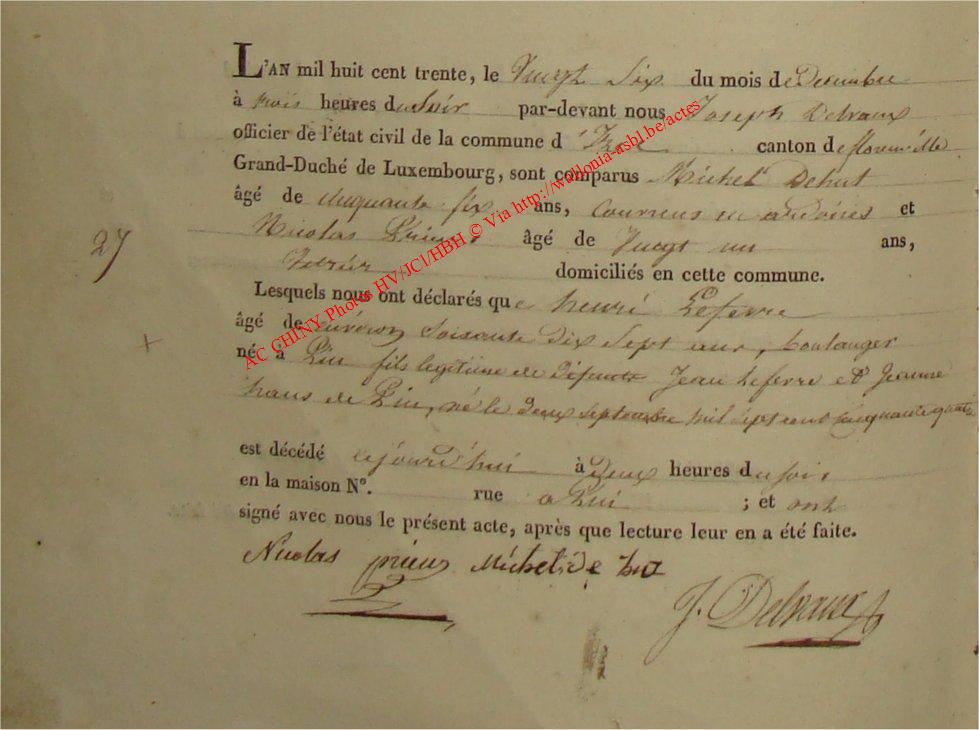 L'AN mil huit cent trente, le Vingt Six du mois de Decembre
à trois heures du Soir par-devant nous Joseph Delvaux
officier de l'état civil de la commune d'Izel canton de florenville
Grand-Duché de Luxembourg, sont comparus Michel Dehut
âgé de cinquante six ans, Couvreur en ardoises et
27 Nicolas Prieur âgé de Vingt un ans,
domiciliés en cette commune.
Lesquels nous ont déclarés que henri Leferre
âgé de environ Soisante dix Sept ans, boulanger
né à Pin fils legitime de Défunts Jean Leferre et Jeanne
hans de Pin, né le deux Septembre mil Sept cent cinquante quatre
est décédé cejourd'hui à deux heures du soir
en la maison N°. rue a Pin ; et ont
signé avec nous le présent acte, après que lecture leur en a été faite.
Nicolas prieur Michel de hut
J. Delvaux
AC CHINY Photos HV/JCl/HBH © Via http://wallonia-asbl.be/actes